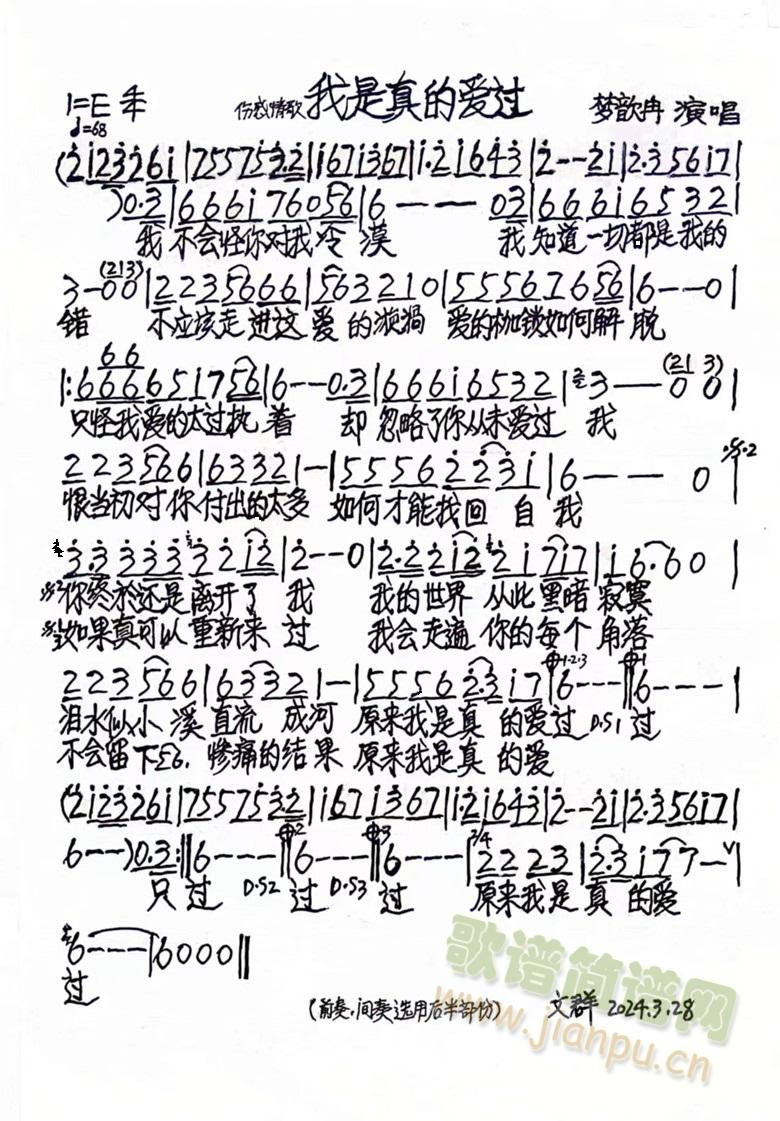 1=E 4/4 伤感情歌 我是真的爱过 梦歆冉 演唱
♩=68
(2 1 2 3 2 6 1 | 7 5 5 7 5 3 2 | 1 6 7 1 3 6 7 | 1·2 1 6 4 3 | 2 - - 2 1 | 2·3 5 6 1 7 |
) 0·3 | 6 6 6 1 7 6 0 5 6 | 6 - - - 0 3 | 6 6 6 1 6 5 3 2 |
我 不会怪你对我冷 漠 我 知道一切都是我的
3 - 0 0 (2 1 3) | 2 2 3 5 6 6 6 | 5 6 3 2 2 1 0 | 5 5 5 6 7 6 5 6 | 6 - - 0 |
错 不应该走 进这 爱 的 漩涡 爱的枷锁如何解 脱
6 6
|: 6 6 6 6 6 5 1 7 5 6 | 6 - - 0·3 | 6 6 6 1 6 5 3 2 | 3 - 0 0 (2 1 3) |
只怪我爱的太过执 着 却 忽略了你从未爱过 我
2 2 3 5 6 6 | 6 3 3 2 1 - | 5 5 5 6 2 2 3 1 | 6 - - - 0 |
恨当初对你付出的太多 如何才能找回 自 我
3·3 3 3 3 3 2 1 2 | 2 - - 0 | 2·2 2 1 2 2 1 7 1 7 | 1 6·6 0 |
你终於还是离开了 我 我的世界 从此黑暗寂寞
如果真可以重新来 过 我会走遍 你的每个 角落
2 2 3 5 6 6 | 6 3 3 2 1 - | 5 5 5 6 2·3 1 7 | 6 - - - || 6 - - - |
泪水似小 溪直流 成河 原来我是真 的爱过 D·S1 过
不会留下 惨痛的结果 原来我是真 的爱
(2 1 2 3 2 6 1 | 7 5 5 7 5 3 2 | 1 6 7 1 3 6 7 | 1·2 1 6 4 3 | 2 - - 2 1 | 2·3 5 6 1 7 |
6 - - - ) 0·3 :|| 6 - - - || 6 - - - || 6 - - - | 3/4 2 2 2 3 | 2·3 1 7 7 - |
只 过 D·S2 过 D·S3 过 原来我是 真 的爱
6 - - - | 6 0 0 0 ||
过
(前奏·间奏选用后半部份) 文群 2024.3.28
歌谱简谱网
www.jianpu.cn